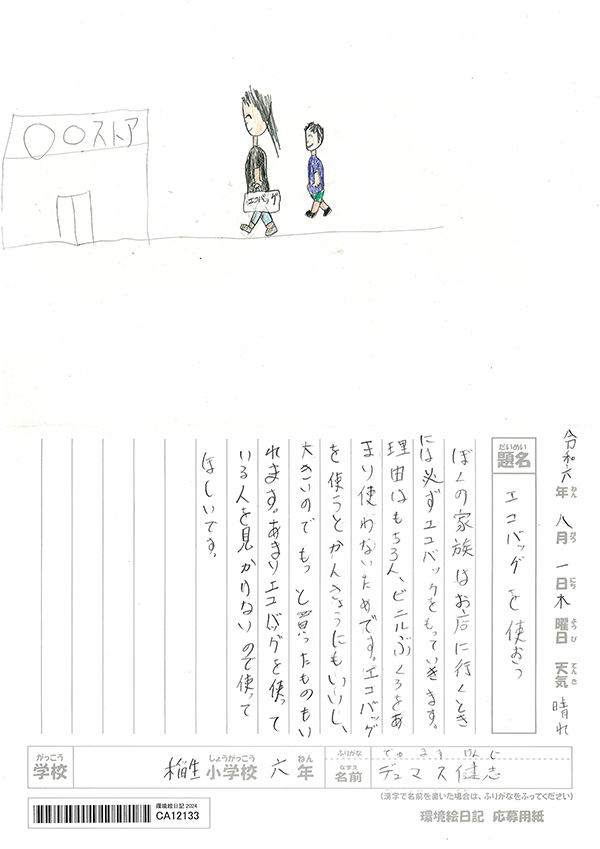 〇〇ストア
エコバッグ
令和六年八月一日木曜日天気晴れ
ねん
がつ
にち
ようび
てんき
だいめい
題名
エコバッグを使おう
ぼくの家族はお店に行くとき
には必ずエコバックをもっていきます。
理由はもちろん、ビニルぶくろをあ
まり使わないためです。エコバッグ
を使うとかんきょうにもいいし、
大きいのでもっと買ったものもい
れます。あまりエコバッグを使って
いる人を見かけないので使って
ほしいです。
がっこう
学校
しょうがっこう
ねん
稲生小学校六年
ふりがな
でゅます けんじ
なまえ
名前
デュマス健志
(漢字で名前を書いた場合は、ふりがなをふってください)
環境絵日記2024
CA12133
環境絵日記 応募用紙